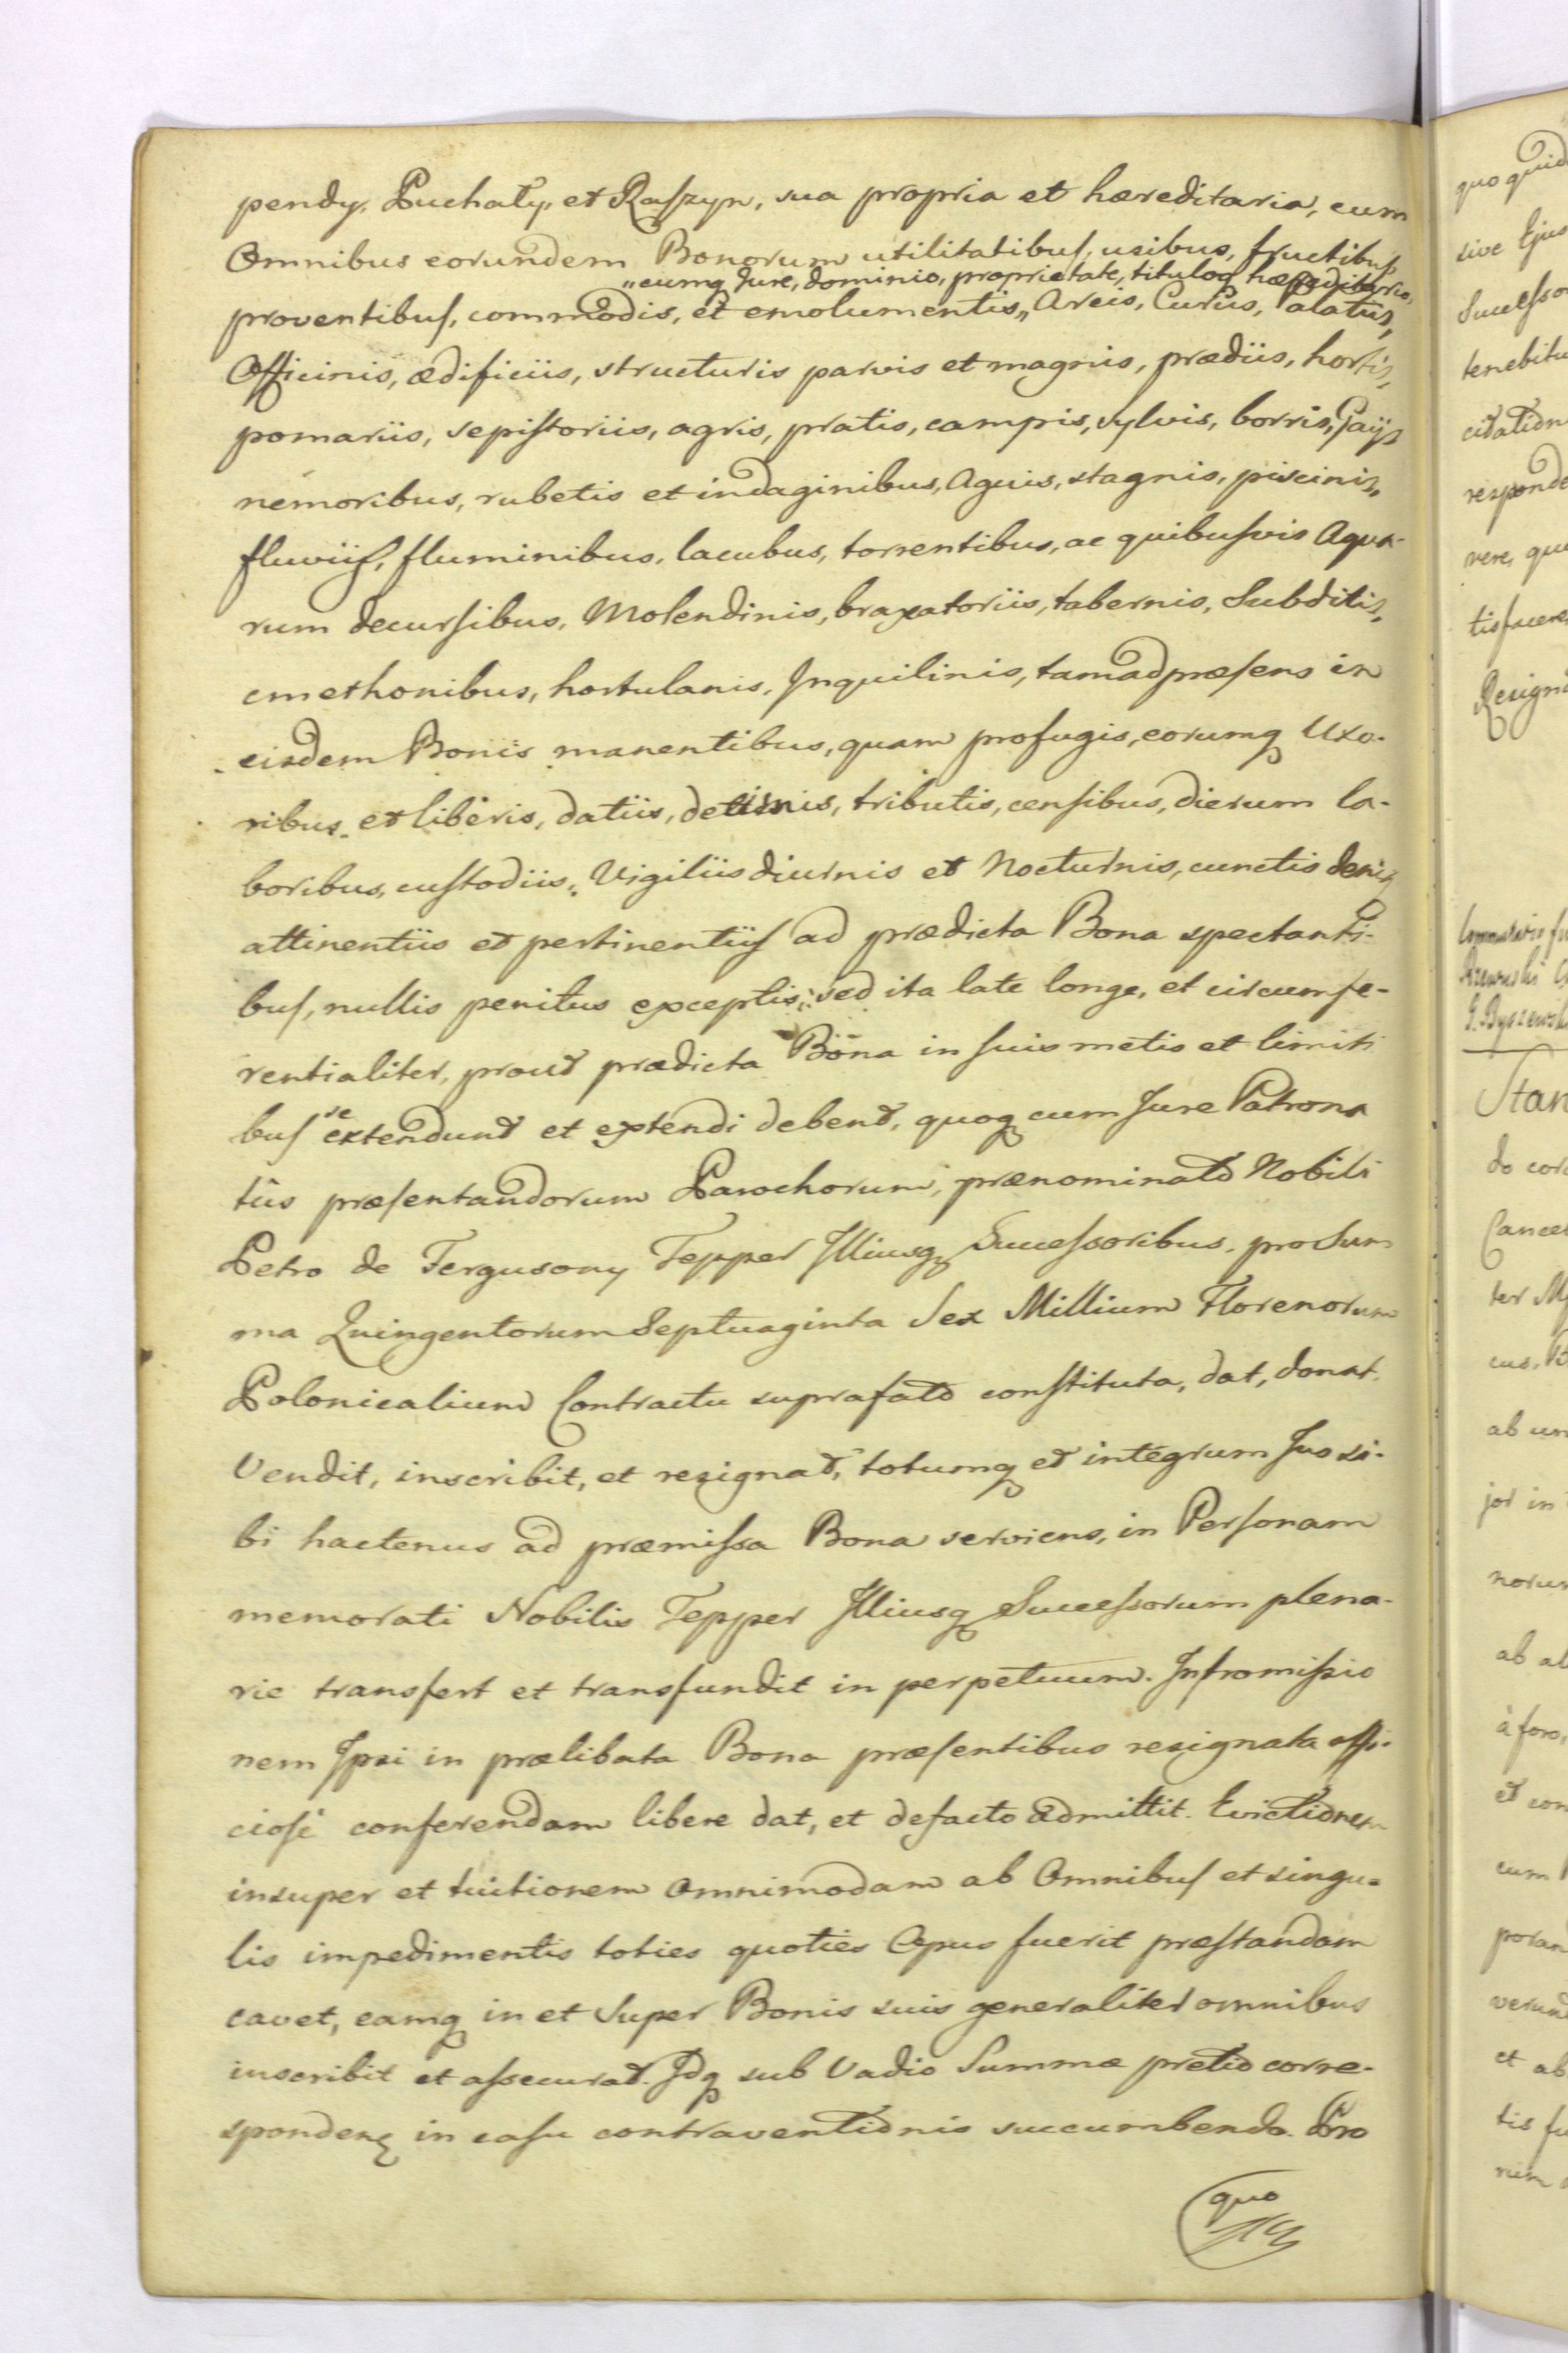 pendy, Puchały, et Raszyn, sua propria et hæreditaria, cum
Omnibus eorundem Bonorum utilitatibus, usibus, fructibus,
„cumq Jure, dominio, proprietate, tituloq hæreditario,
proventibus, commodis, et emolumentis„ Areis, Curiis, Palatiis,
Officinis, ædificiis, structuris parvis et magnis, prædiis, hortis,
pomariis, sepistoriis, agris, pratis, campis, sylvis, borris, Gaijs
nemoribus, rubetis et indaginibus, Aquis, stagnis, piscinis,
fluviis, fluminibus, lacubus, torrentibus, ac quibusvis Aqua-
rum decursibus, Molendinis, braxatoriis, tabernis, Subditis,
cmethonibus, hortulanis, Inquilinis, tam ad præsens in
eisdem Bonis manentibus, quam profugis, eorumq Uxo-
ribus et liberis, datiis, decimis, tributis, censibus, dierum la-
boribus, custodiis, Vigiliis diurnis et Nocturnis, cunctis deniq
attinentiis et pertinentiis ad prædicta Bona spectanti-
bus, nullis penitus exceptis, sed ita late longe, et circumfe-
rentialiter, prout prædicta Bona in suis metis et limiti
bus se extendunt et extendi debent, quoq cum Jure Patrona
tûs præsentandorum Parochorum, prænominato Nobili
Petro de Fergusony Tepper Illiusq Successoribus, pro Sum
ma Quingentorum Septuaginta Sex Millium Florenorum
Polonicalium Contractu suprafato constituta, dat, donat,
Vendit, inscribit, et resignat, totumq et integrum Jus si-
bi hactenus ad præmissa Bona serviens, in Personam
memorati Nobilis Tepper Illiusq Successorum plena-
rie transfert et transfundit in perpetuum. Intromissio
nem Ipsi in prælibata Bona præsentibus resignata offi-
ciose conferendam libere dat, et defacto admittit. Evictionem
insuper et tuitionem omnimodam ab Omnibus et singu-
lis impedimentis toties quoties Opus fuerit præstandam
cavet, eamq in et Super Bonis suis generaliter omnibus
inscribit et assecurat. Idq sub Vadio Summæ pretio corre-
sponden in casu contraventionis succumbendo. Pro
quo
quo quid
sive Ejus
Successo
tenebitu
citation
responde
vere, qu
tisfacere,
Resign
G. Byszewsk
Stan
do cor
Cancel
ter M
cus,
ab un
jor in
norum
ab al
à foro,
et con
cum
poran
verund
et ab
tis fu